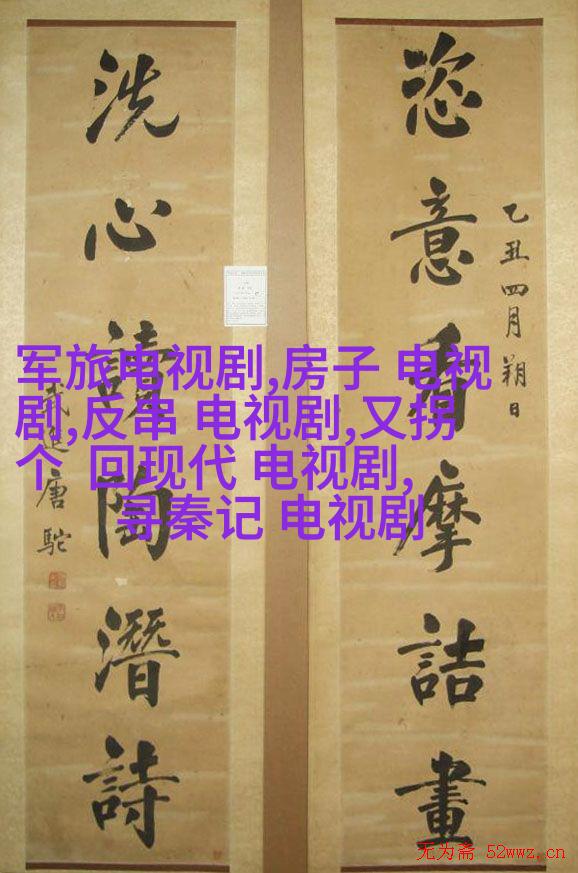 恣意看摩詰畫
乙丑四月朔日
洗心讀陶潛詩
武進唐駝
军旅电视剧,房子 电视
剧,反串 电视剧,又拐
个 回现代 电视剧,
寻秦记 电视剧
无为斋 52wwz.cn